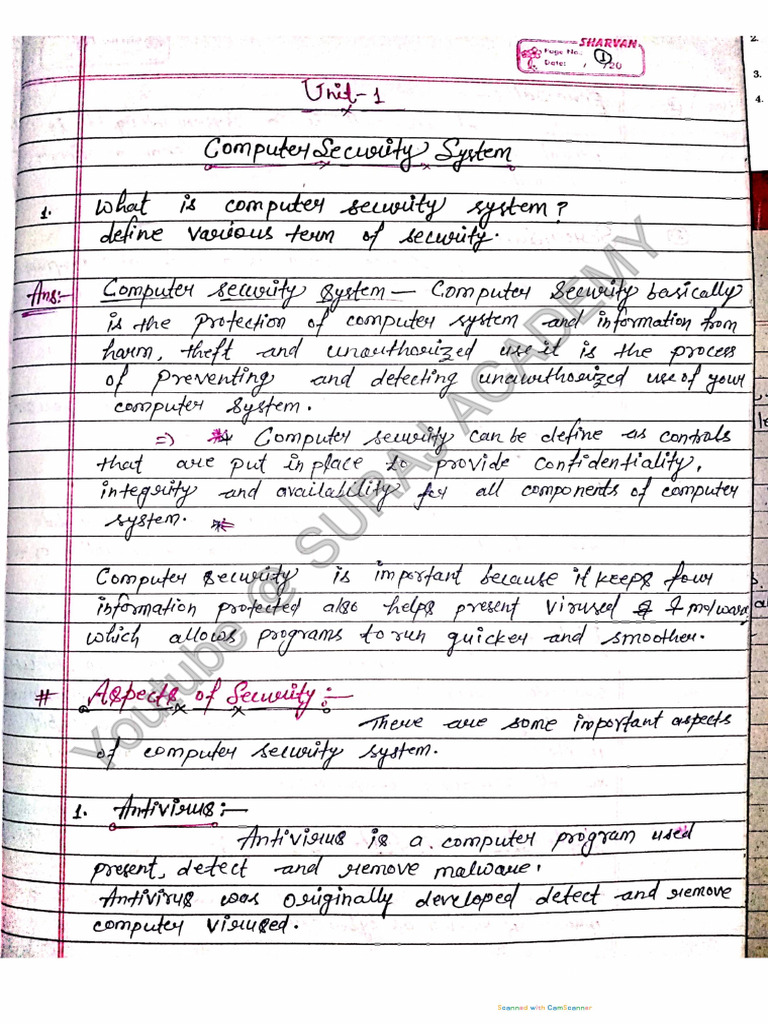 SHARVAN
Page No. 1
Date: / /20
2.
3.
4.
Unit-1
Computer Security System
1. What is computer security system?
define various term of security.
Ans:- Computer security system — Computer Security basically
is the protection of computer system and information from
harm, theft and unauthorized use it is the process
of preventing and detecting unauthorized use of your
computer system.
=> * Computer security can be define as controls
that are put in place to provide confidentiality,
integrity and availability for all components of computer
system. *
Computer security is important because it keeps four
information protected also helps present virused & malware
which allows programs to run quicker and smoother.
# Aspects of Security:—
There are some important aspects
of computer security system.
1. Antivirus:—
Antivirus is a computer program used
present, detect and remove malware.
Antivirus was originally developed detect and remove
computer virused.
Youtube @ SURAJ ACADEMY
Scanned with CamScanner